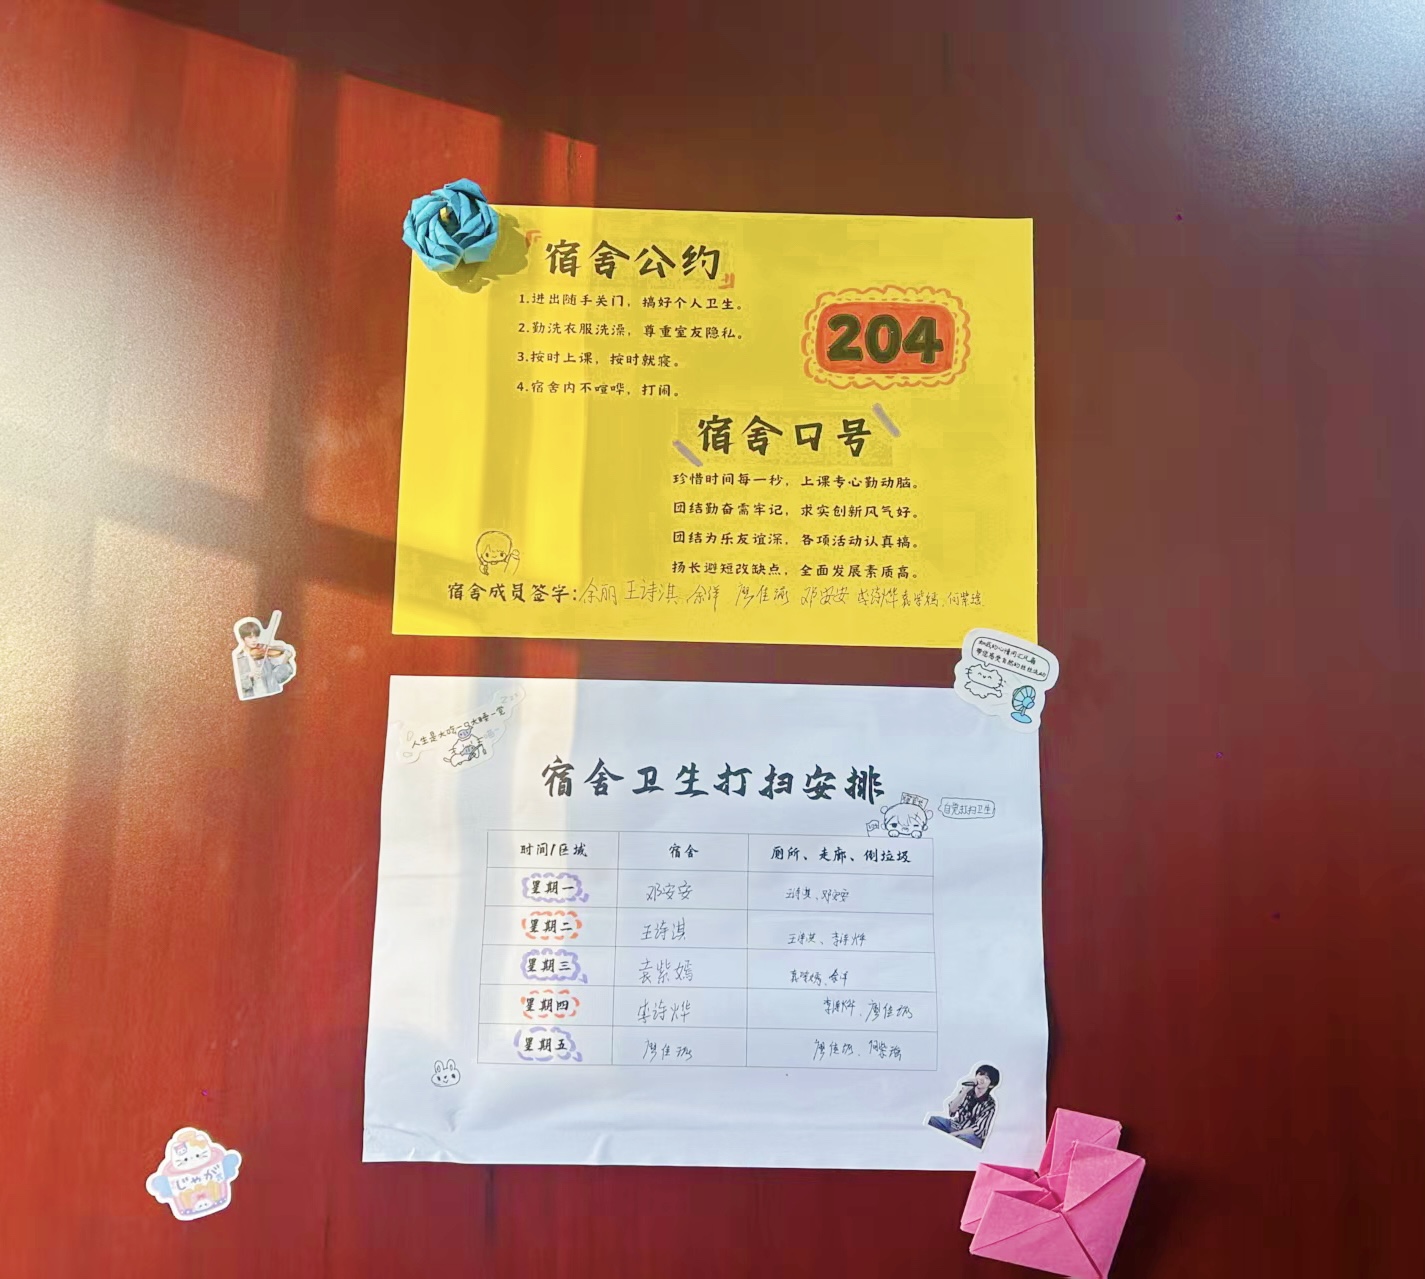 宿舍公约
1.进出随手关门，搞好个人卫生。
2.勤洗衣服洗澡，尊重室友隐私。
3.按时上课，按时就寝。
4.宿舍内不喧哗，打闹。
204
宿舍口号
珍惜时间每一秒，上课专心勤动脑。
团结勤奋需牢记，求实创新风气好。
团结为乐友谊深，各项活动认真搞。
扬长避短改缺点，全面发展素质高。
宿舍成员签字：余丽 王诗淇 余洋 廖佳 邓安安 李诗烨 袁紫嫣、何紫
人生是大吃一口大睡一觉
宿舍卫生打扫安排
自觉打扫卫生
时间/区域 宿舍 厕所、走廊、倒垃圾
星期一 邓安安 王诗淇、邓安安
星期二 王诗淇 王诗淇、李诗烨
星期三 袁紫嫣 袁紫嫣、余洋
星期四 李诗烨 李诗烨、廖佳
星期五 廖佳 廖佳、何紫
じゃが